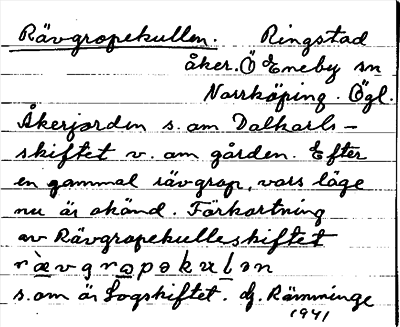 Rävgropekullen. Ringstad
åker. Ö Eneby sn
Norrköping. Ögl.
Åkerjorden s. om Dalkarls-
skiftet v. om gården. Efter
en gammal rävgrop, vars läge
nu är okänd. Förkortning
av Rävgropekulleskiftet
rævgropəkulən
s. om är Logskiftet. dj. Rämminge
1941